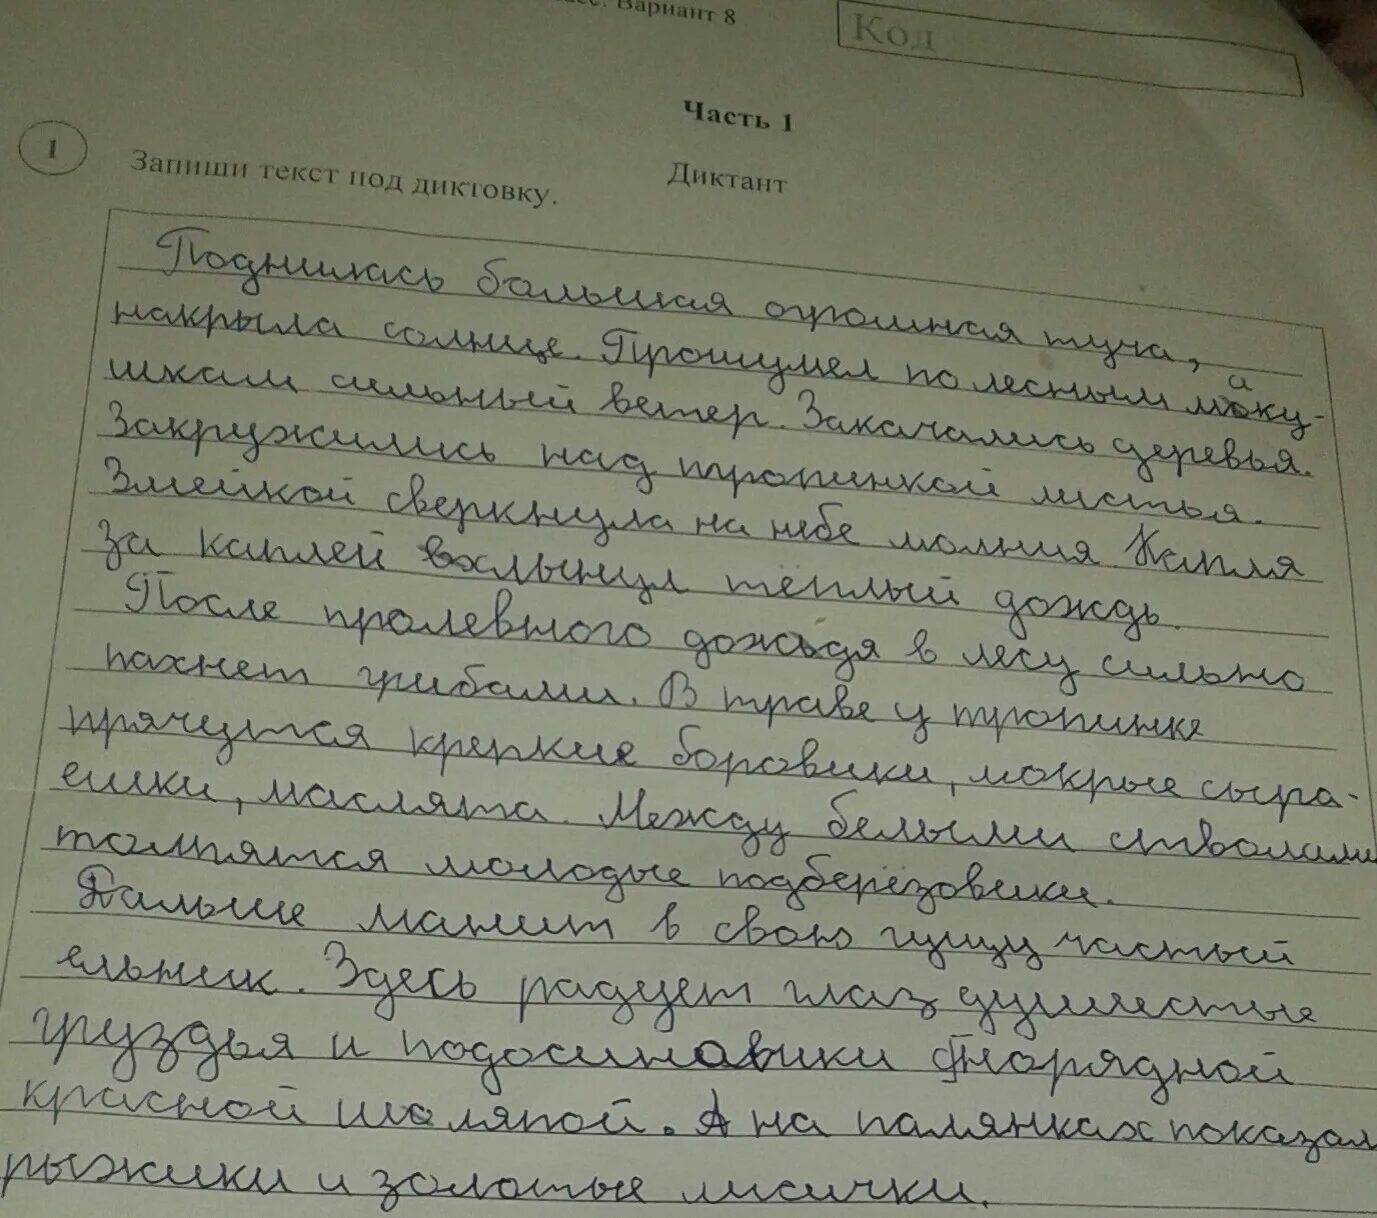 Вариант 8
Код
Часть 1
1
Запиши текст под диктовку.
Диктант
Поднилась большая огромная туча,
накрыла солнце. Прошумел по лесным маку-
шкам сильный ветер. Закачались деревья.
Закружились над тропинкой листья.
Змейкой сверкнула на небе молния. Капля
за каплей хлынул тёплый дождь.
После пролевного дождя в лесу сильно
пахнет грибами. В траве у тропинке
прячутся крепкие боровики, мокрые сыра-
ешки, маслята. Между белыми стволами
толпятся молодые подберёзовики.
Дальше манит в свою гущу частый
ельник. Здесь радует глаз душистые
груздья и подосинавики норядной
красной шоляпой. А на палянках показал
рыжики и золотые лисички.